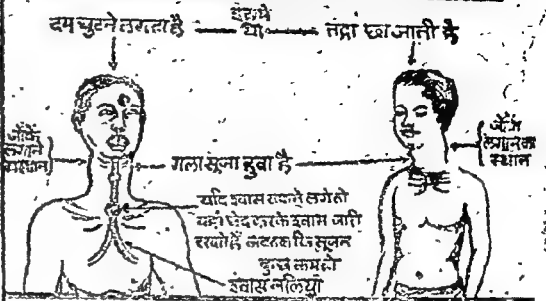 दम घुटने लगता है
इससे
या
तंद्रा छा जाती है
जोंकें
लगाने
का स्थान
गला सूजा हुवा है
जोंकें
लगाने का
स्थान
यदि श्वास रुकने लगे तो
यहां छेद करके श्वास जारी
रखते हैं जबतक कि सूजन
कुछ कम हो
श्वास नलियां